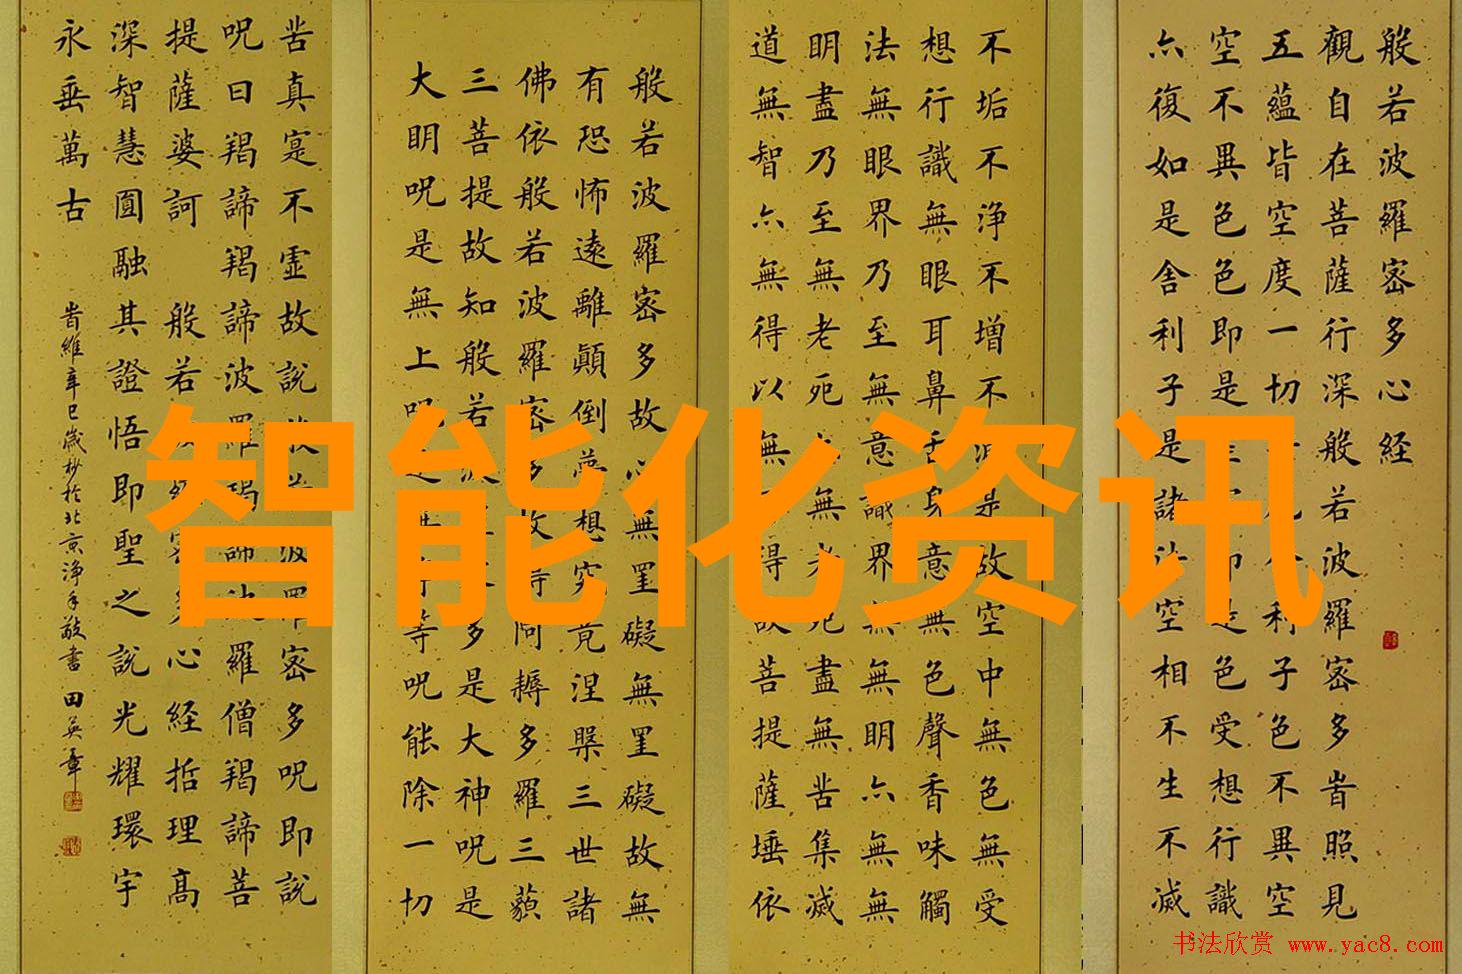 般若波羅密多心经
觀自在菩薩行深般若波羅密多峕照見
五蘊皆空度一切利子色不異空
空不異色色即是是色受想行識
六復如是舍利子是諸法空相不生不滅
不垢不淨不增不減是故空中無色無受
想行識無眼耳鼻舌身意無色聲香味觸
法無眼界乃至無意識界無無明六無無
明盡乃至無老死無老死盡無苦集滅
道無智六無得以無得故菩提薩埵依
般若波羅密多故心無罣礙無罣礙故無
有恐怖遠離顛倒夢想究竟涅槃三世諸
佛依般若波羅密多故得阿耨多羅三藐
三菩提故知般若多是大神呪是
大明呪是無上呪是無等等呪能除一切
苦真寔不虛故說般若波羅密多呪即說
呪曰羯諦羯諦波羅羯諦波羅僧羯諦菩
提薩婆訶 般若密多心経括理高
深智慧圓融其證悟即聖之說光耀環宇
永垂萬古
峕維辛巳歲杪於北京淨手敬書 田英章
智能化资讯
书法欣赏 www.yac8.com